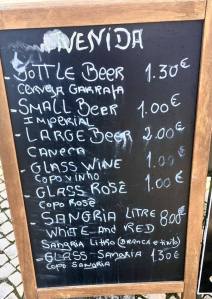 AVENIDA
- BOTTLE BEER 1.30€
CERVEJA GARRAFA
- SMALL BEER 1.00€
IMPERIAL
- LARGE BEER 2.00€
CANECA
- GLASS WINE 1.00€
COPO VINHO
- GLASS ROSE 1.00€
COPO ROSE
- SANGRIA LITRE 8.00€
WHITE AND RED
SANGRIA LITRO (BRANCA E TINTO)
- GLASS SANGRIA 1.30€
COPO SANGRIA